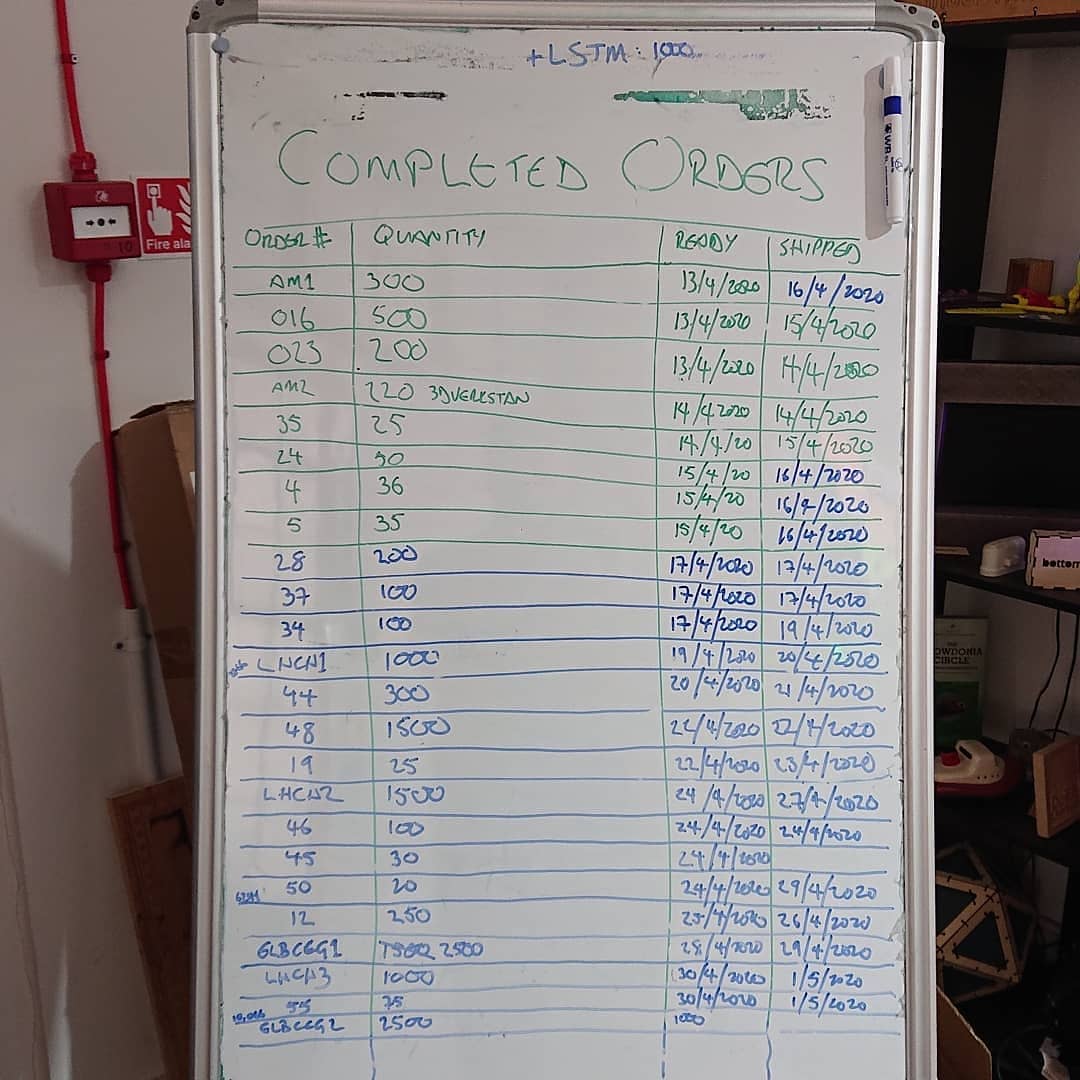 +LSTM: 1000
COMPLETED ORDERS
ORDER# QUANTITY READY SHIPPED
AM1 300 13/4/2020 16/4/2020
016 500 13/4/2020 15/4/2020
023 200 13/4/2020 14/4/2020
AM2 220 3DVERKSTAN 14/4/2020 14/4/2020
35 25 14/4/20 15/4/2020
24 90 15/4/20 16/4/2020
4 36 15/4/20 16/4/2020
5 35 15/4/20 16/4/2020
28 200 17/4/2020 17/4/2020
37 100 17/4/2020 17/4/2020
34 100 17/4/2020 19/4/2020
LHCH1 1000 19/4/2020 20/4/2020
44 300 20/4/2020 21/4/2020
48 1500 22/4/2020 22/4/2020
19 25 22/4/2020 23/4/2020
LHCH2 1500 24/4/2020 27/4/2020
46 100 24/4/2020 24/4/2020
45 30 24/4/2020
50 20 24/4/2020 29/4/2020
12 250 25/4/2020 26/4/2020
GLBCCG1 2500 28/4/2020 29/4/2020
LHCH3 1000 30/4/2020 1/5/2020
55 75 30/4/2020 1/5/2020
10,016
GLBCCG2 2500 1000
Fire ala
WB
bottom
OWDONIA
CIRCLE